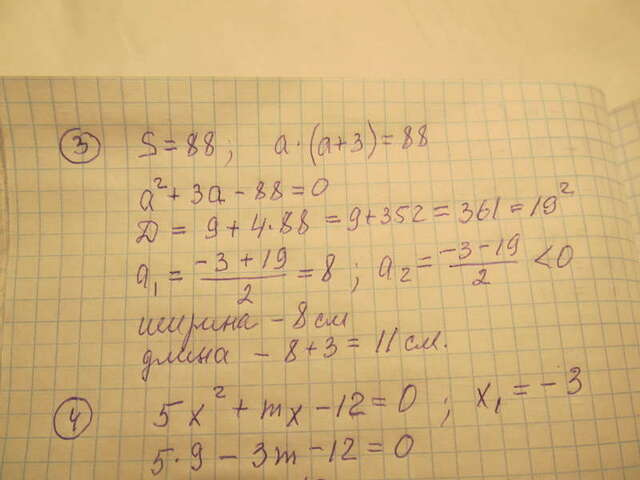 ③ S = 88 ; a · (a+3) = 88
a² + 3a - 88 = 0
Д = 9 + 4·88 = 9+352 = 361 = 19²
a₁ = (-3+19)/2 = 8 ; a₂ = (-3-19)/2 < 0
ширина - 8 см
длина - 8+3 = 11 см.
④ 5x² + mx - 12 = 0 ; x₁ = -3
5·9 - 3m - 12 = 0